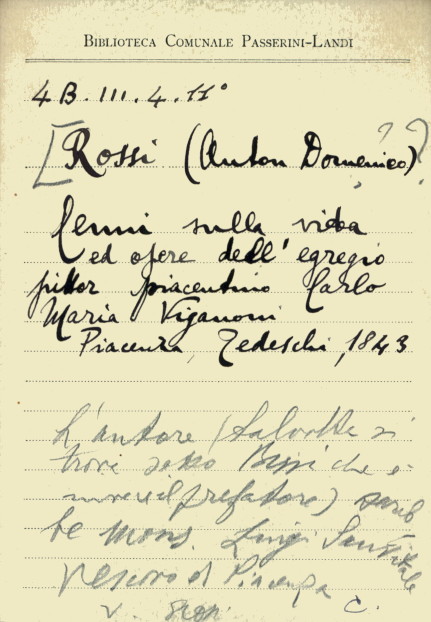 BIBLIOTECA COMUNALE PASSERINI-LANDI
4 B. III. 4. 11°
[Rossi (Anton Domenico) ??
Cenni sulla vita
ed opere dell' egregio
pittor piacentino Carlo
Maria Viganoni
Piacenza, Tedeschi, 1843
L'autore (talvolta si
trova sotto Bissi che è
invece il prefatore) sareb
be mons. Luigi Sanvitale
Vescovo di Piacenza
v. C.